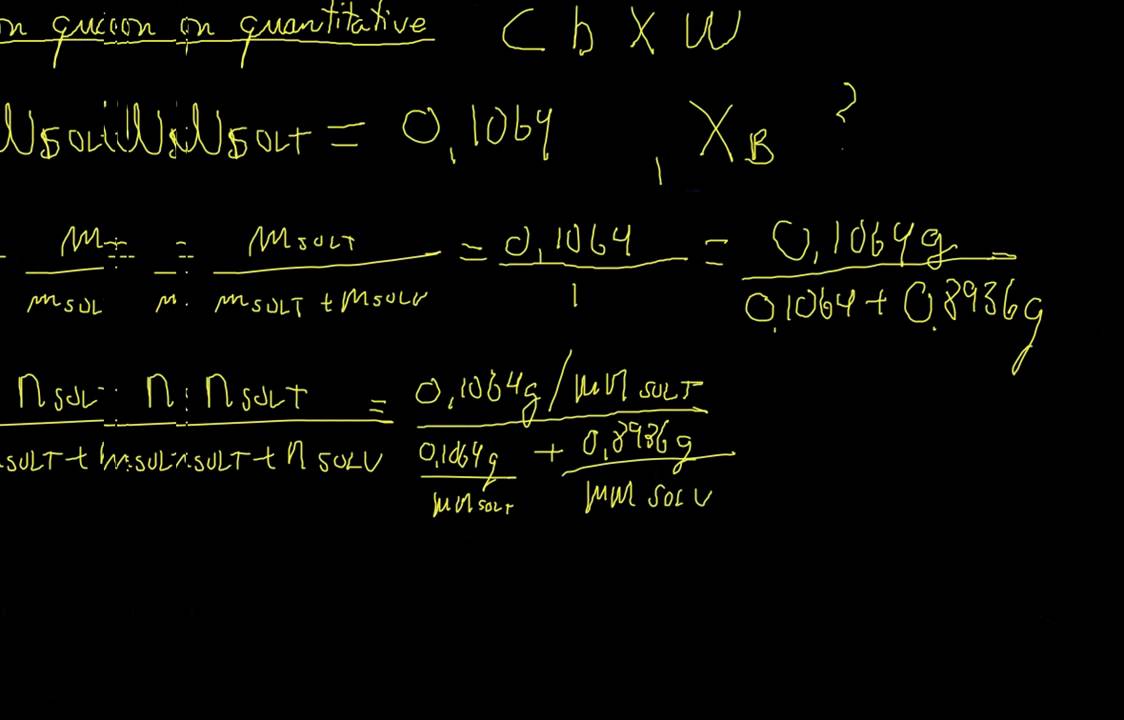 on quantitative C b X W
SOLT = 0,1064 , X_B ?
m / m_SOL = m_SOLT / m_SOLT + m_SOLV = 0,1064 / 1 = 0,1064g / 0,1064 + 0,8936g
n_SOLT / n_SOLT + n_SOLV = 0,1064g / MM SOLT / 0,1064g / MM SOLT + 0,8936g / MM SOLV